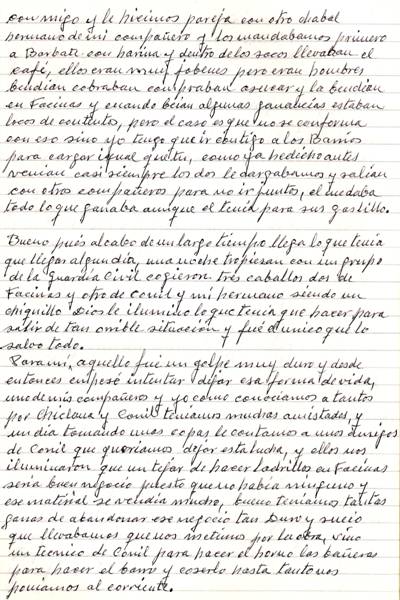 conmigo y le hicimos pareja con otro chabal
hermano de mi compañero y los mandabamos primero
a Barbate con harina y dentro de los sacos llevaban el
café, ellos eran muy jobenes pero eran hombres
bendian cobraban compraban asucar y la bendian
en Facinas y cuando beian algunas ganancias estaban
locos de contentos, pero el caso es que no se conforma
con eso sino yo tengo que ir contigo a los Barrios
para cargar igual que tu, como ya he dicho antes
venian casi siempre los dos le cargabamos y salian
con otros compañeros para no ir juntos, el me daba
todo lo que ganaba aunque el tenia para sus gastillo.
Bueno pués al cabo de un largo tiempo llega lo que tenia
que llegar algun dia, una noche tropiesan con un grupo
de la Guardia Civil cogieron tres caballos dos de
Facinas y otro de Conil y mi hermano siendo un
chiquillo Dios le ilumino lo que tenia que hacer para
salir de tan orrible situación y fué el unico que lo
salvo todo.
Para mi, aquello fué un golpe muy duro y desde
entonces empesé intentar dejar esa forma de vida,
uno de mis compañeros y yo como conociamos a tantos
por Chiclana y Conil teniamos muchas amistades, y
un dia tomando unas copas le contamos a unos amigos
de Conil que queriamos dejar esta lucha, y ellos nos
iluminaron que un tejar de hacer ladrillos en Facinas
seria buen negocio puesto que no había ninguno y
ese material se vendia mucho, bueno teniamos tantas
ganas de abandonar ese negocio tan Duro y sucio
que llevabamos que nos metimos por la obra, vino
un tecnico de Conil para hacer el horno las bañeras
para hacer el barro y coserlo hasta tanto nos
poniamos al corriente.